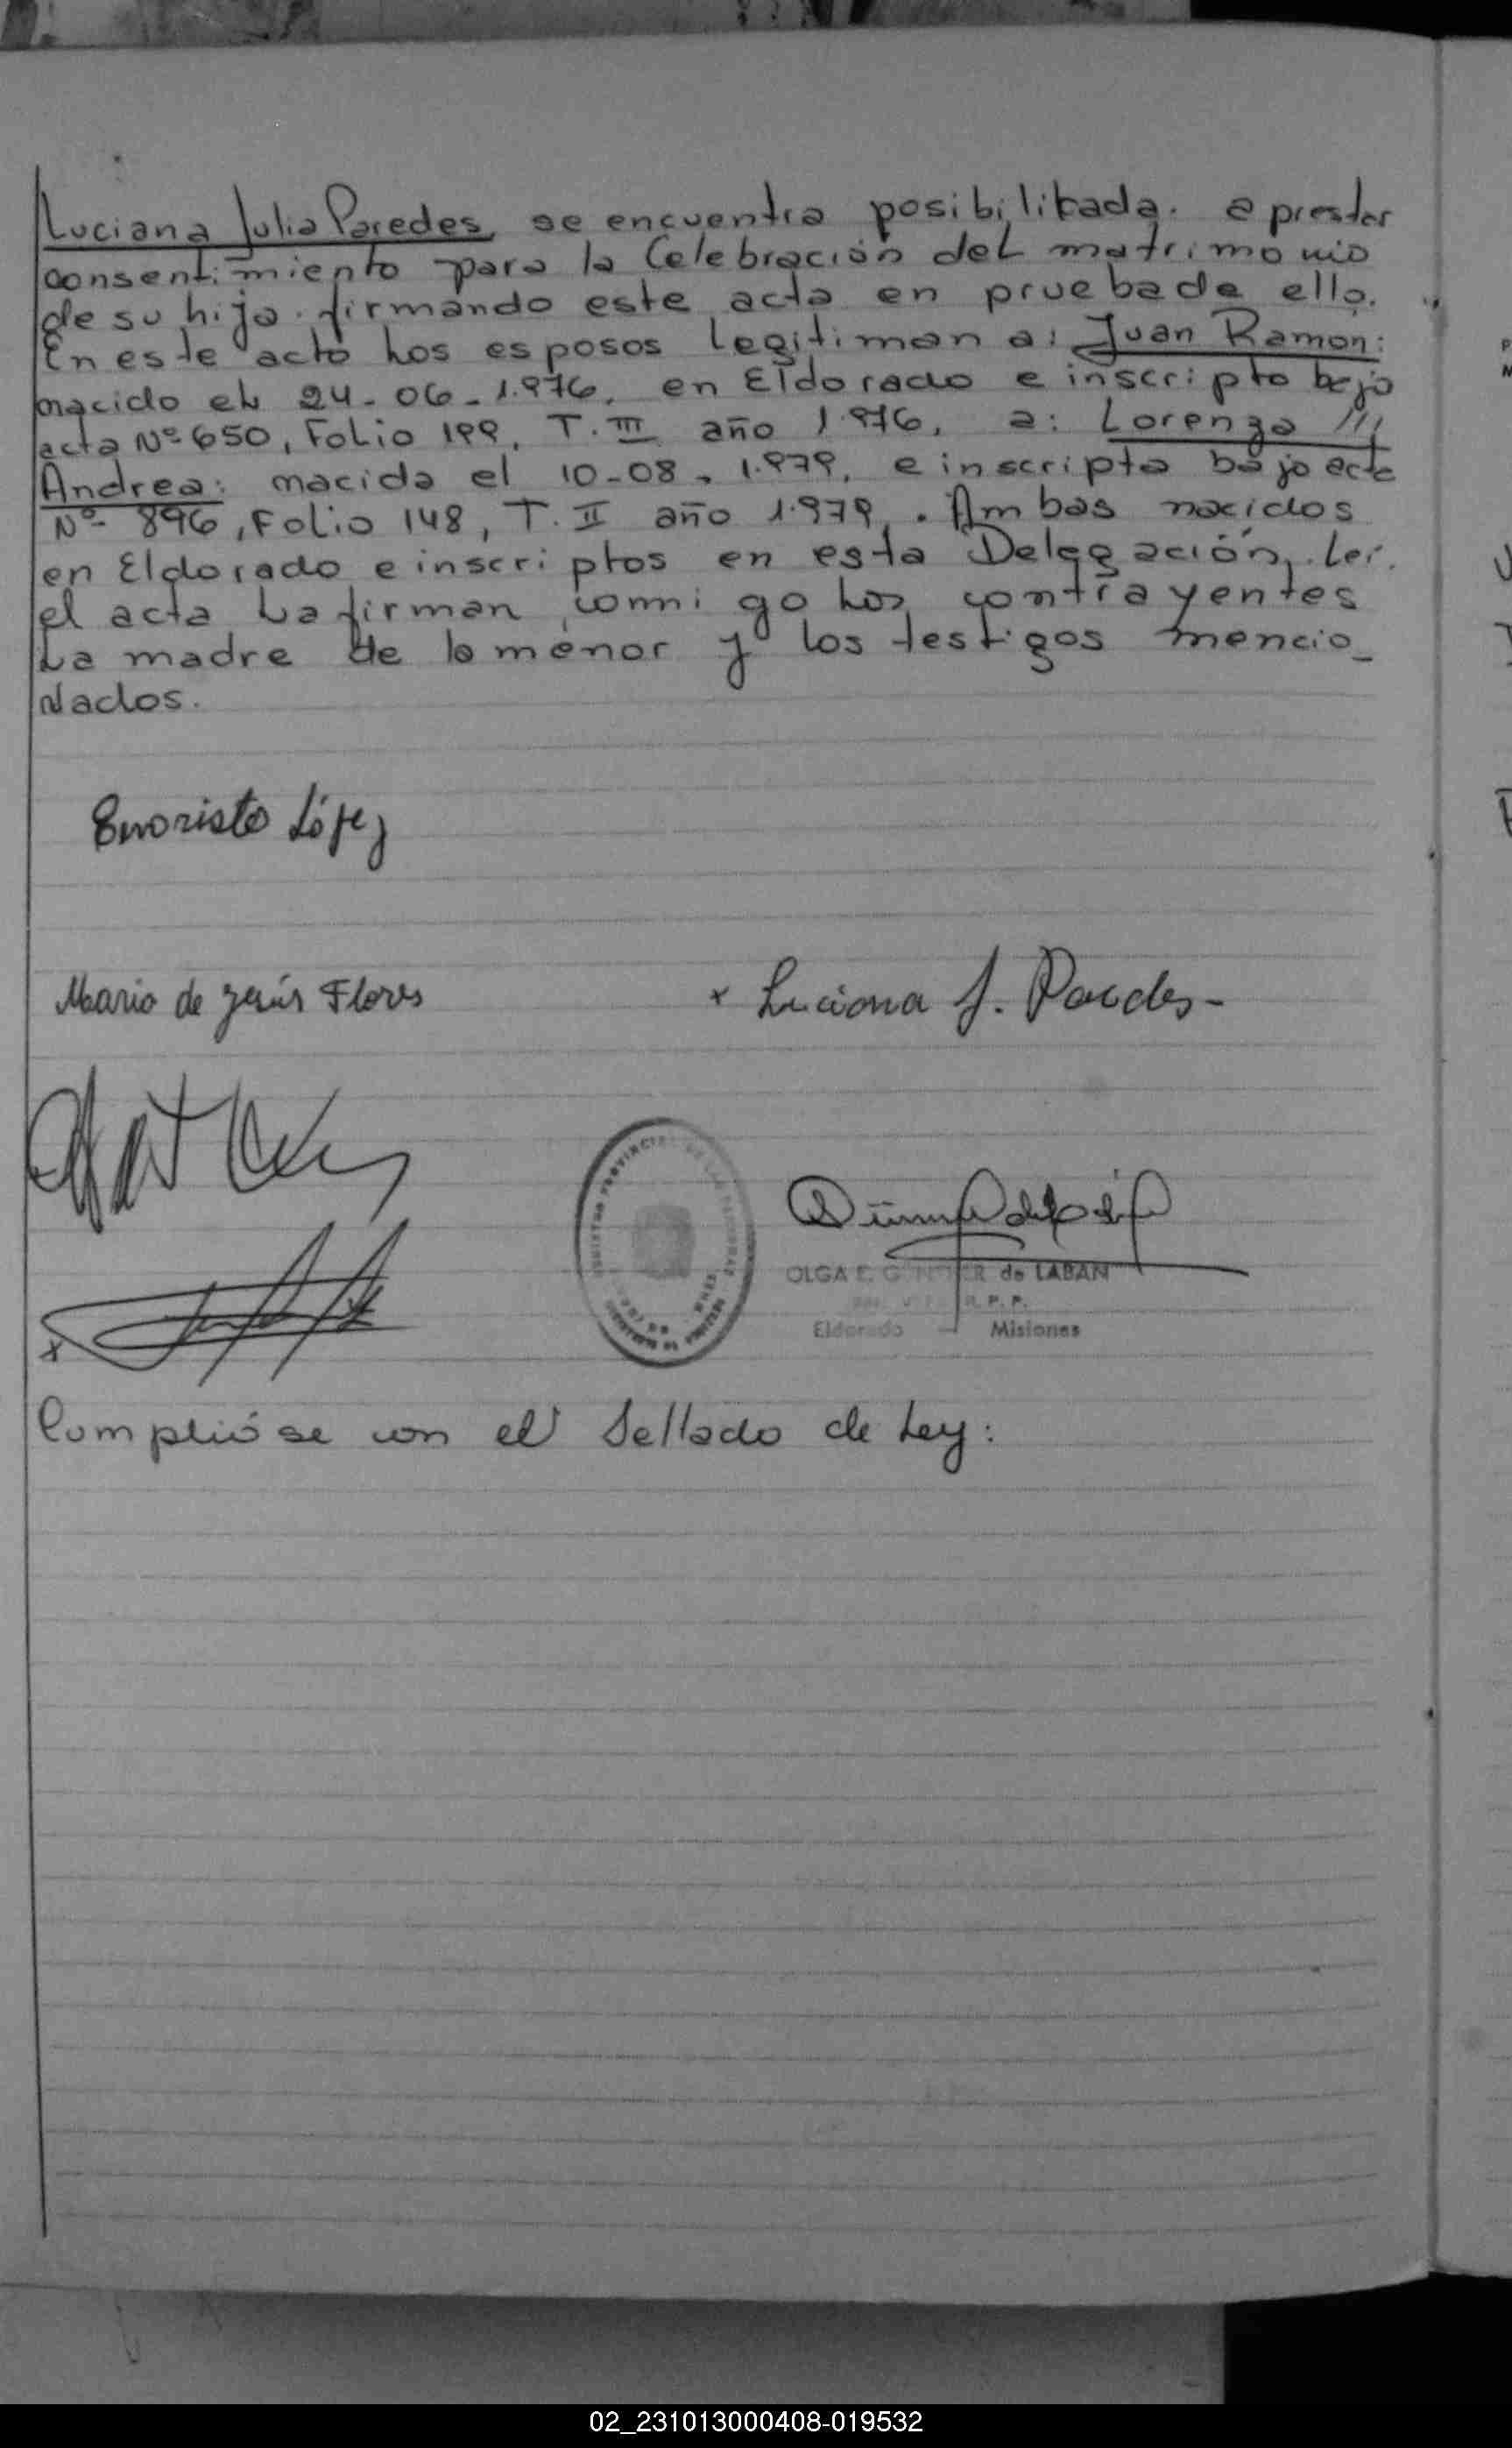 Luciana Julia Paredes, se encuentra posibilitada. a prestar
consentimiento para la Celebración del matrimonio
de su hija. firmando este acta en prueba de ello.
En este acto los esposos legitiman a: Juan Ramon:
nacido el 24-06-1.976, en Eldorado e inscripto bajo
acta Nº 650, Folio 199, T. III año 1.976, a: Lorenza ///
Andrea: nacida el 10-08-1.979, e inscripta bajo acta
Nº 896, Folio 148, T. II año 1.979,. Ambos nacidos
en Eldorado e inscriptos en esta Delegación. Leí.
el acta La firman conmigo los contrayentes
La madre de la menor y los testigos mencio_
Nados.
Evaristo López
Mario de Jesús Flores
x Luciana J. Paredes-
x
OLGA E. de LABAN
R. P. P.
Eldorado — Misiones
Cumplióse con el Sellado de Ley:
02_231013000408-019532